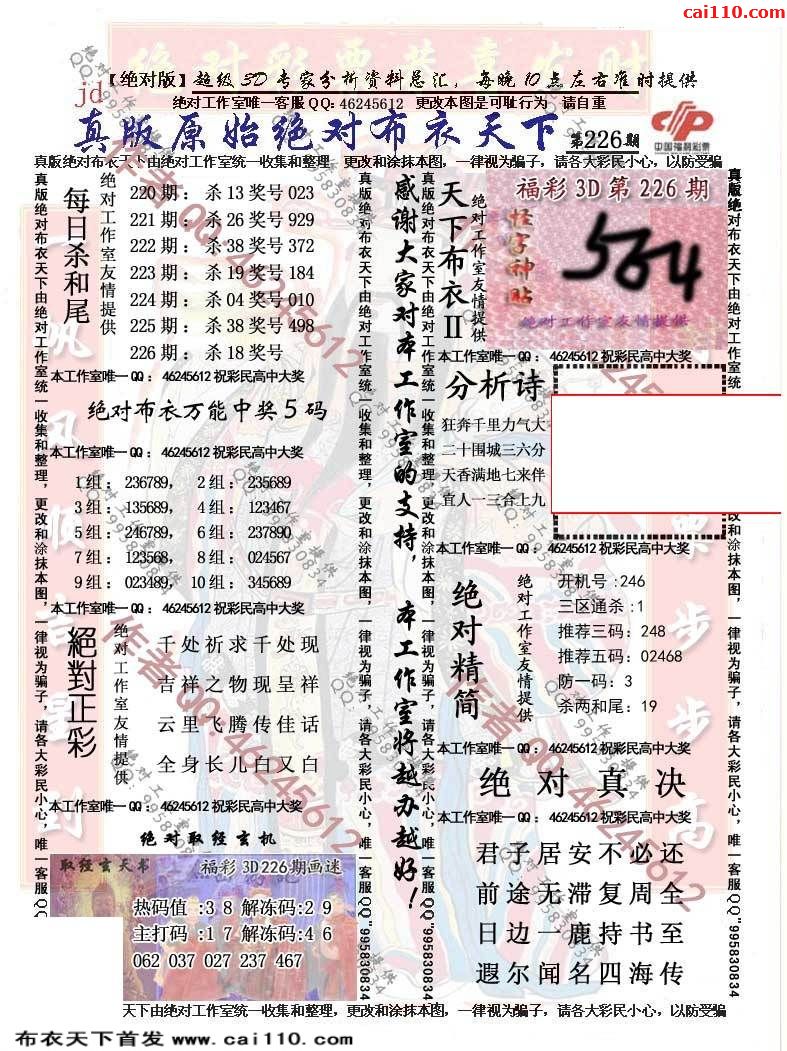 cai110.com
【绝对版】超级3D专家分析资料总汇，每晚10点左右准时提供
绝对工作室唯一客服QQ：46245612 更改本图是可耻行为 请自重
jd
真版原始绝对布衣天下 第226期
中国福利彩票
真版绝对布衣天下由绝对工作室统一收集和整理，更改和涂抹本图，一律视为骗子，请各大彩民小心，以防受骗
每日杀和尾
绝对工作室友情提供
220期：杀13奖号023
221期：杀26奖号929
222期：杀38奖号372
223期：杀19奖号184
224期：杀04奖号010
225期：杀38奖号498
226期：杀18奖号
本工作室唯一QQ：46245612祝彩民高中大奖
绝对布衣万能中奖5码
本工作室唯一QQ：46245612祝彩民高中大奖
1组：236789，2组：235689
3组：135689，4组：123467
5组：246789，6组：237890
7组：123568，8组：024567
9组：023489，10组：345689
本工作室唯一QQ：46245612祝彩民高中大奖
絕對正彩
绝对工作室友情提供
千处祈求千处现
吉祥之物现呈祥
云里飞腾传佳话
全身长儿白又白
本工作室唯一QQ：46245612祝彩民高中大奖
绝对取经玄机
取经玄天书
福彩3D226期画迷
热码值:38解冻码:29
主打码:17解冻码:46
062 037 027 237 467
感谢大家对本工作室的支持，本工作室将越办越好！
天下布衣II
绝对工作室友情提供
福彩3D第226期
怪字神贴
504
绝对工作室友情提供
本工作室唯一QQ：46245612祝彩民高中大奖
分析诗
狂奔千里力气大
二十围城三六分
天香满地七来伴
宜人一三合上九
本工作室唯一QQ：46245612祝彩民高中大奖
绝对精简
绝对工作室友情提供
开机号:246
三区通杀:1
推荐三码:248
推荐五码:02468
防一码:3
杀两和尾:19
本工作室唯一QQ：46245612祝彩民高中大奖
绝对真决
本工作室唯一QQ：46245612祝彩民高中大奖
君子居安不必还
前途无滞复周全
日边一鹿持书至
遐尔闻名四海传
真版绝对布衣天下由绝对工作室统一收集和整理，更改和涂抹本图，一律视为骗子，请各大彩民小心，唯一客服QQ"995830834
天下由绝对工作室统一收集和整理，更改和涂抹本图，一律视为骗子，请各大彩民小心，以防受骗
布衣天下首发 www.cai110.com
作者QQ:46245612